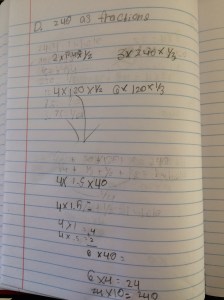 Q 240 as fractions
2 x 240 x 1/2 3 x 240 x 1/3
4 x 120 x 1/2 6 x 120 x 1/3
4 x 1.5 x 40
4 x 1.5 =
4 x 1 = 4
6 x 40 =
6 x 4 = 24
24 x 10 = 240